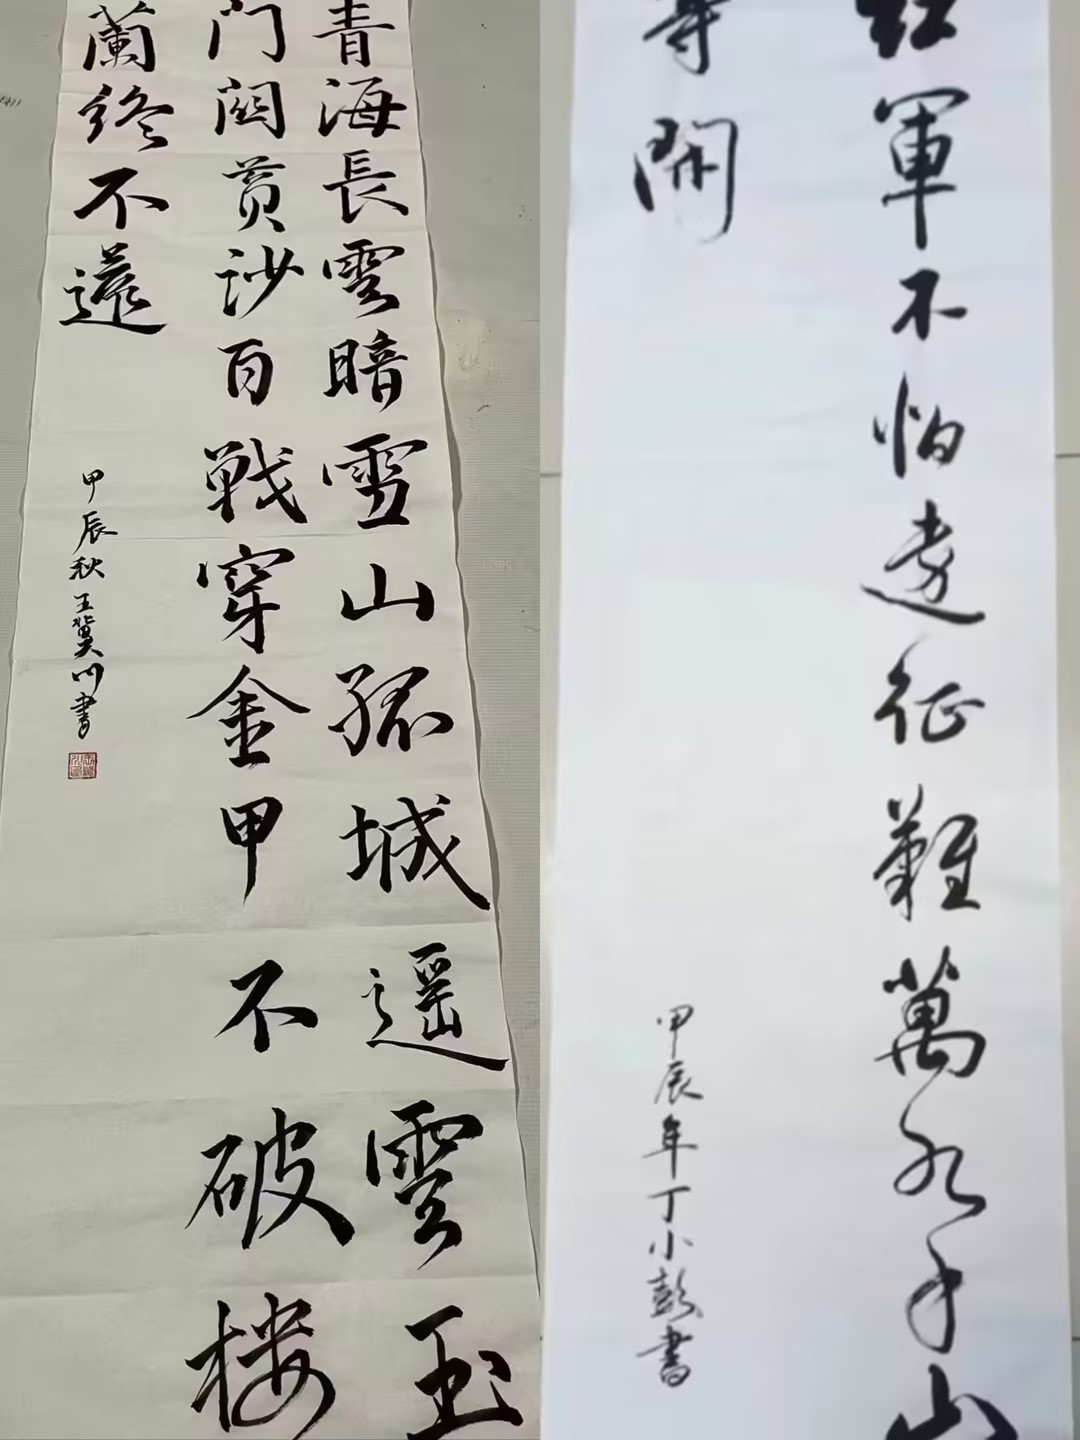 青海長雲暗雪山孤城遥雲玉
门関黄沙百戰穿金甲不破楼
蘭终不還
甲辰秋王冀川書
红軍不怕遠征難萬水千山
等開
甲辰年丁小彭書